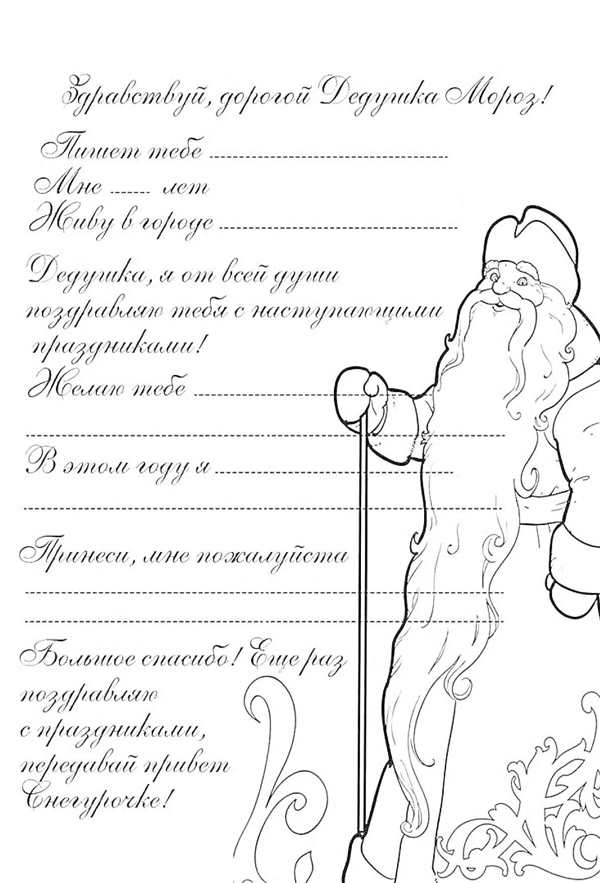 Здравствуй, дорогой Дедушка Мороз!
Пишет тебе
Мне ...... лет
Живу в городе
Дедушка, я от всей души
поздравляю тебя с наступающими
праздниками!
Желаю тебе
В этом году я
Принеси, мне пожалуйста
Большое спасибо! Еще раз
поздравляю
с праздниками,
передавай привет
Снегурочке!